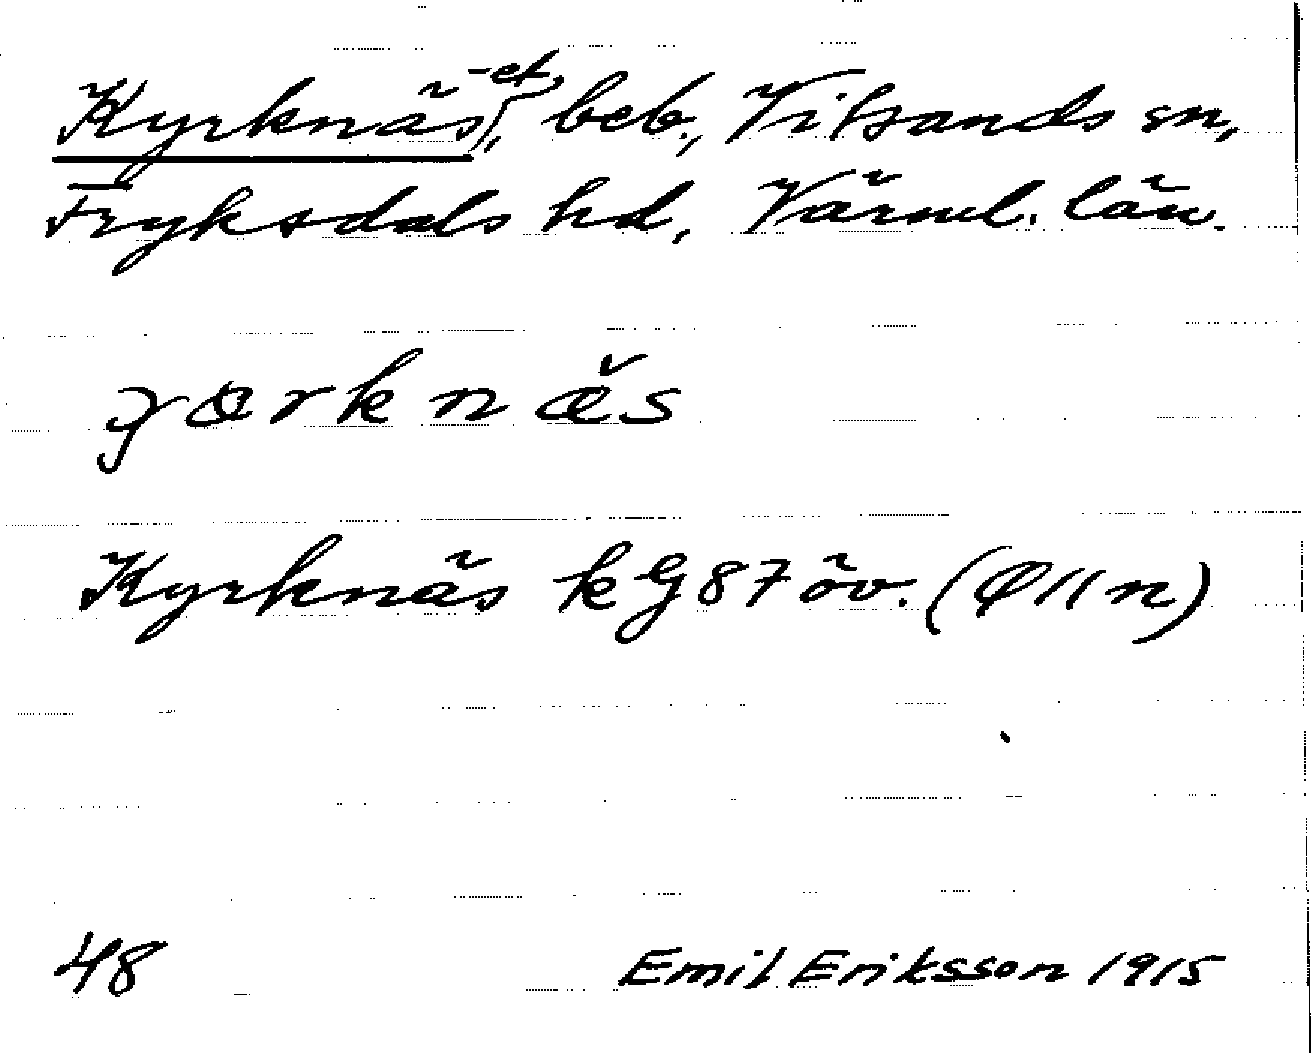 Kyrknäs, -et, beb., Vitsands sn,
Fryksdals hd, Värml. län.
kG 87 öv.
Kyrknäs
48 Emil Eriksson 1915